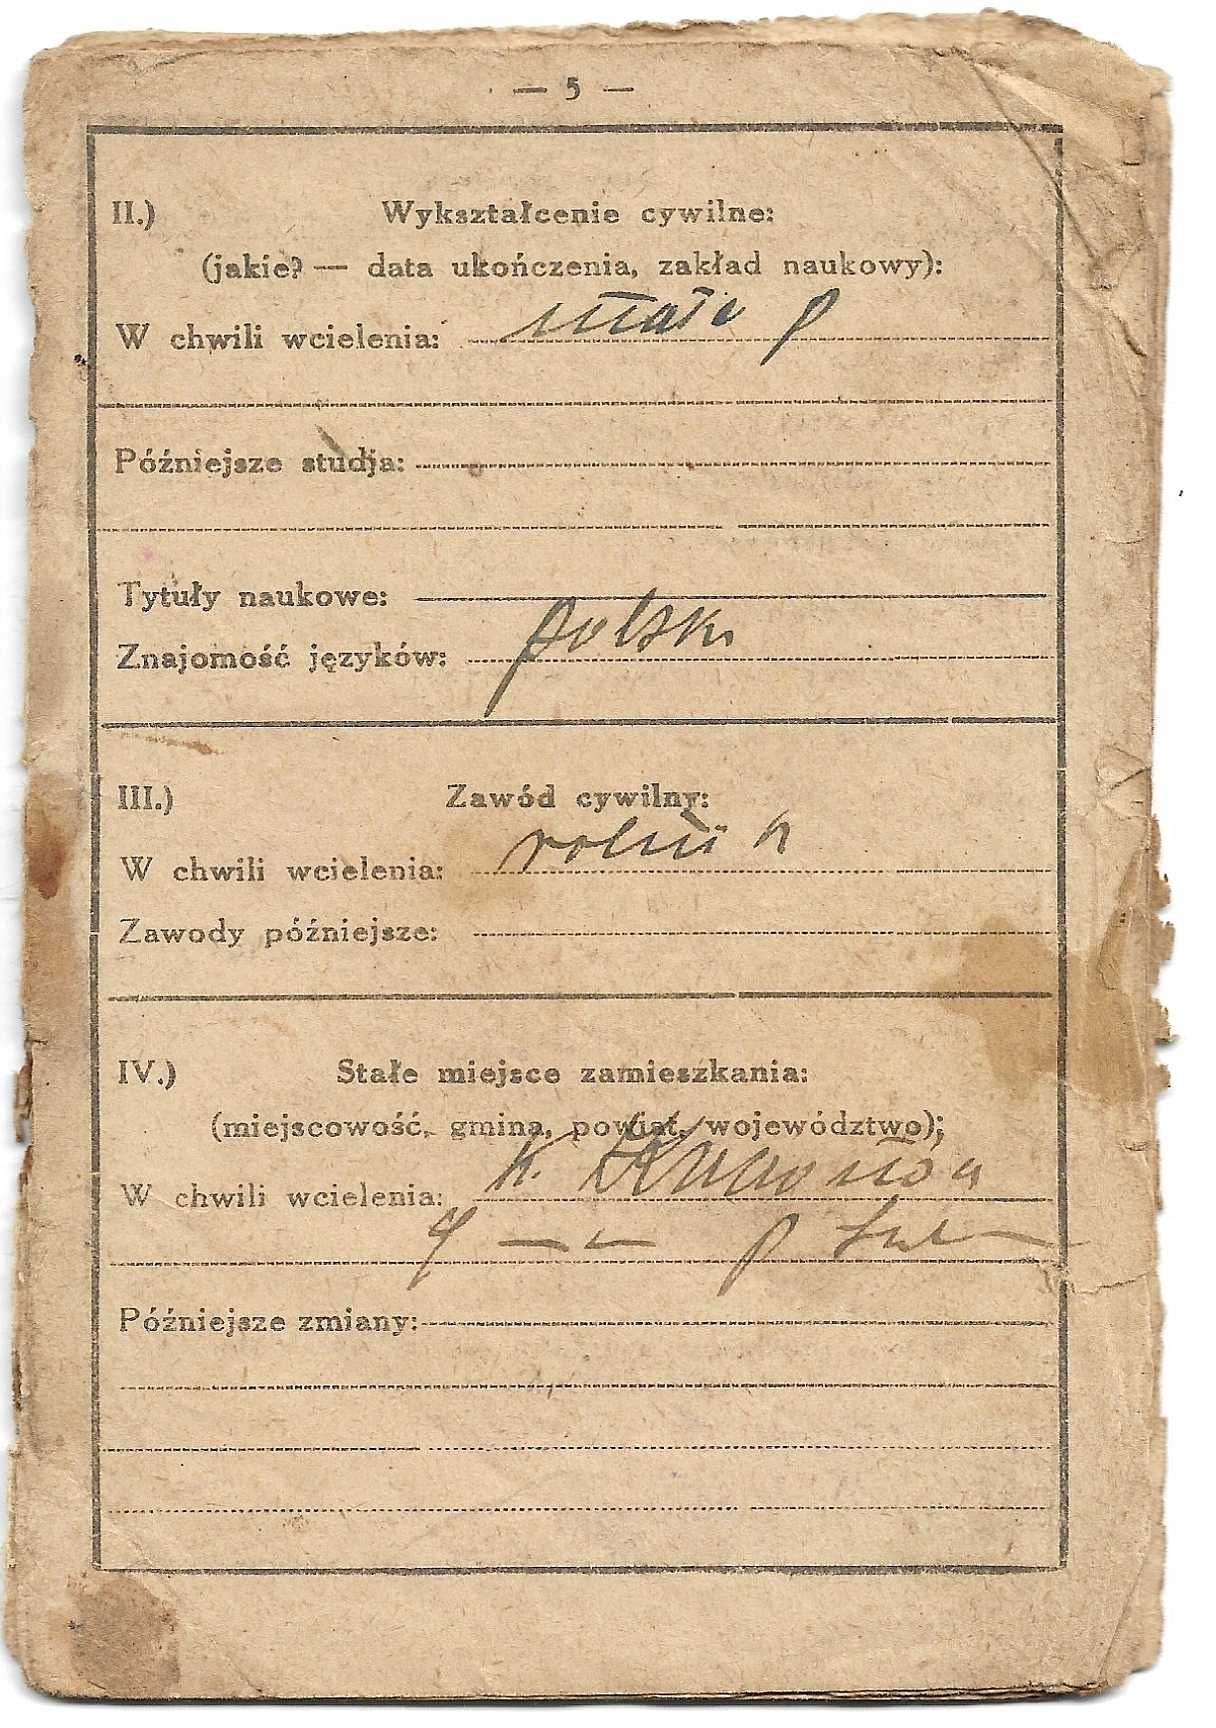 — 5 —
II.) Wykształcenie cywilne:
(jakie? — data ukończenia, zakład naukowy):
W chwili wcielenia: małe p
Późniejsze studja:
Tytuły naukowe:
Znajomość języków: polski
III.) Zawód cywilny:
W chwili wcielenia: rolnik
Zawody późniejsze:
IV.) Stałe miejsce zamieszkania:
(miejscowość, gmina, powiat, województwo);
W chwili wcielenia: K.
p
Późniejsze zmiany: